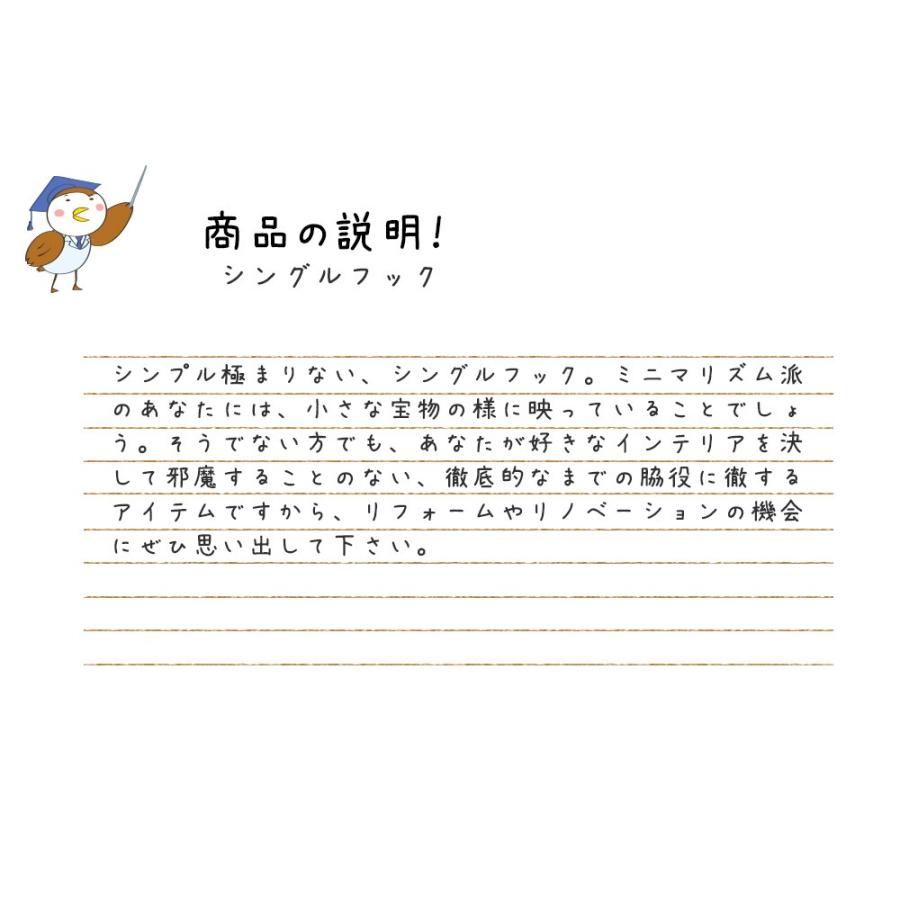 商品の説明!
シングルフック
シンプル極まりない、シングルフック。ミニマリズム派
のあなたには、小さな宝物の様に映っていることでしょ
う。そうでない方でも、あなたが好きなインテリアを決
して邪魔することのない、徹底的なまでの脇役に徹する
アイテムですから、リフォームやリノベーションの機会
にぜひ思い出して下さい。